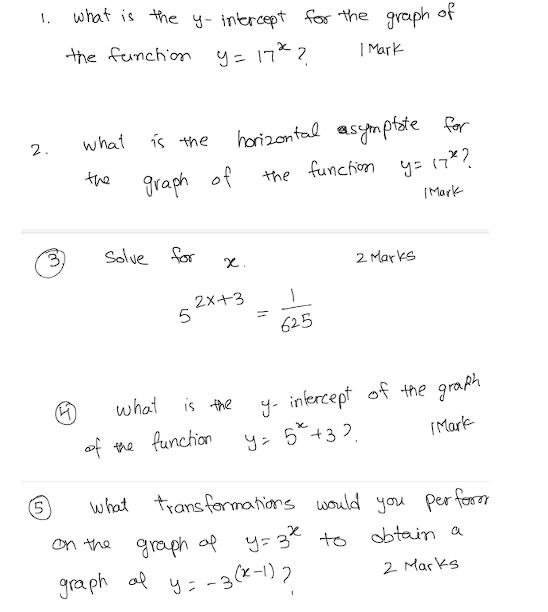 1. what is the y-intercept for the graph of
the function y = 17^x ? 1 Mark
2. what is the horizontal asymptote for
the graph of the function y = 17^x ?
1 Mark
3) Solve for x. 2 Marks
5^2x+3 = 1/625
4 what is the y-intercept of the graph
of the function y = 5^x + 3 ?. 1 Mark
5 what transformations would you perform
on the graph of y = 3^x to obtain a
graph of y = -3^(x-1) ? 2 Marks